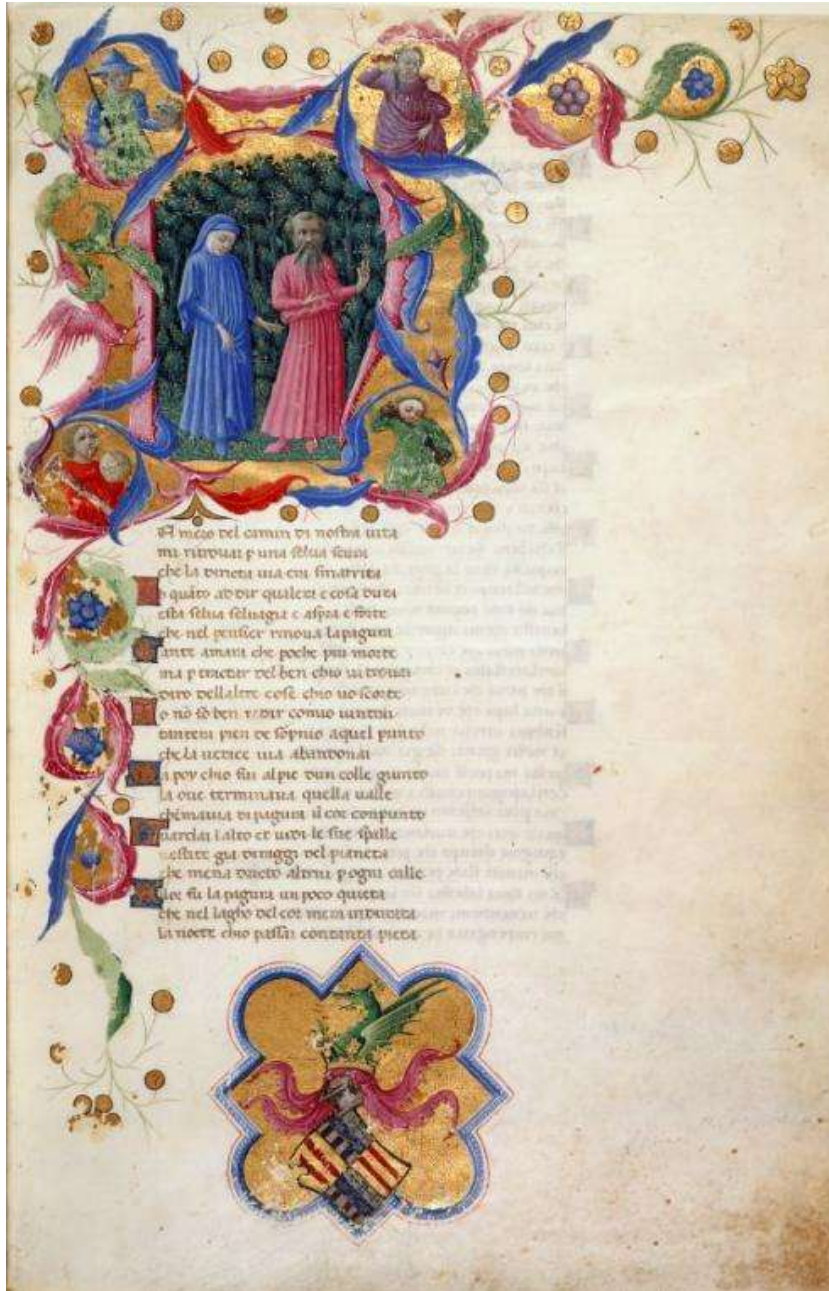 el mezo del camin di nostra uita
mi ritrouai p una selua scura
che la dirieta uia era smarrita
quāto ad dir quale era e cosa dura
esta selua seluagia e aspra e forte
che nel pensier rinoua la pagura
ante amara che poche piu morte
ma p tractar del ben chio ui trouai
diro dellaltre cose chio uo scorte
o nō so ben redir como uintrai
tantera pien de sopnio aquel punto
che la uerace uia abandonai
a poy chio fui al pie dun colle giunto
la oue terminaua quella ualle
che mauia di pagura il cor conpunto
uardai lalto et uidi le sue spalle
uestite gia di raggi del pianeta
che mena dricto altrui p ogni calle
lor fu la pagura un poco quieta
che nel lagho del cor mera indurata
la nocte chio passai con tanta pieta